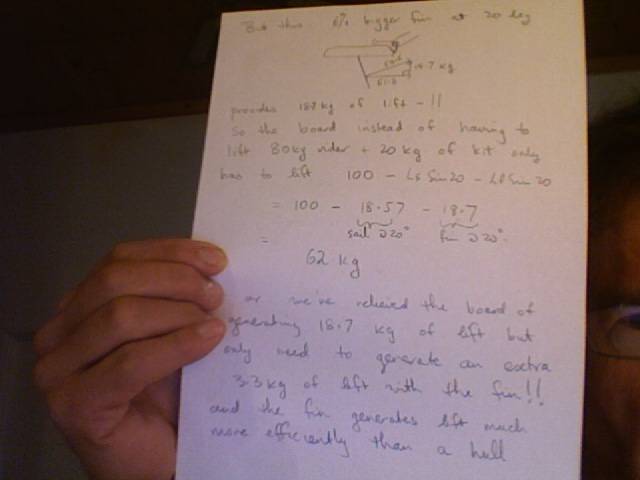 But this 6% bigger fin at 20 deg
18.7 kg
provides 18.7 kg of lift - !!
So the board instead of having to
lift 80kg rider + 20 kg of kit only
has to lift 100 - Ls Sin 20 - Lf Sin 20
= 100 - 18.57 - 18.7
sail @ 20° fin @ 20°
=
62 kg
or we've relieved the board of
generating 18.7 kg of lift but
only need to generate an extra
3.3 kg of lift with the fin!!
and the fin generates lift much
more efficiently than a hull